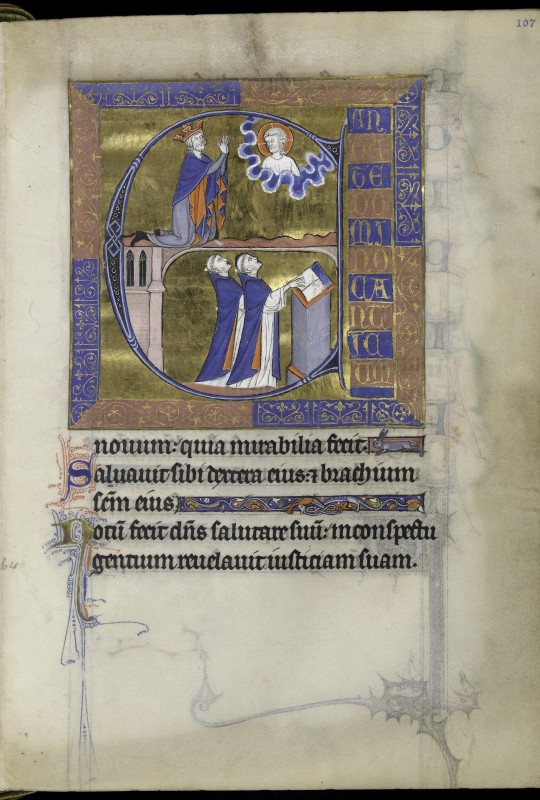 107
C
AN
TA
TE
DO
MI
NO
CA
NT
IC
UM
nouum: quia mirabilia fecit.
Saluauit sibi dextera eius: ⁊ brachium
scm̄ eius
Notū fecit dn̄s salutare suū: in conspectu
gentium reuelauit iusticiam suam.